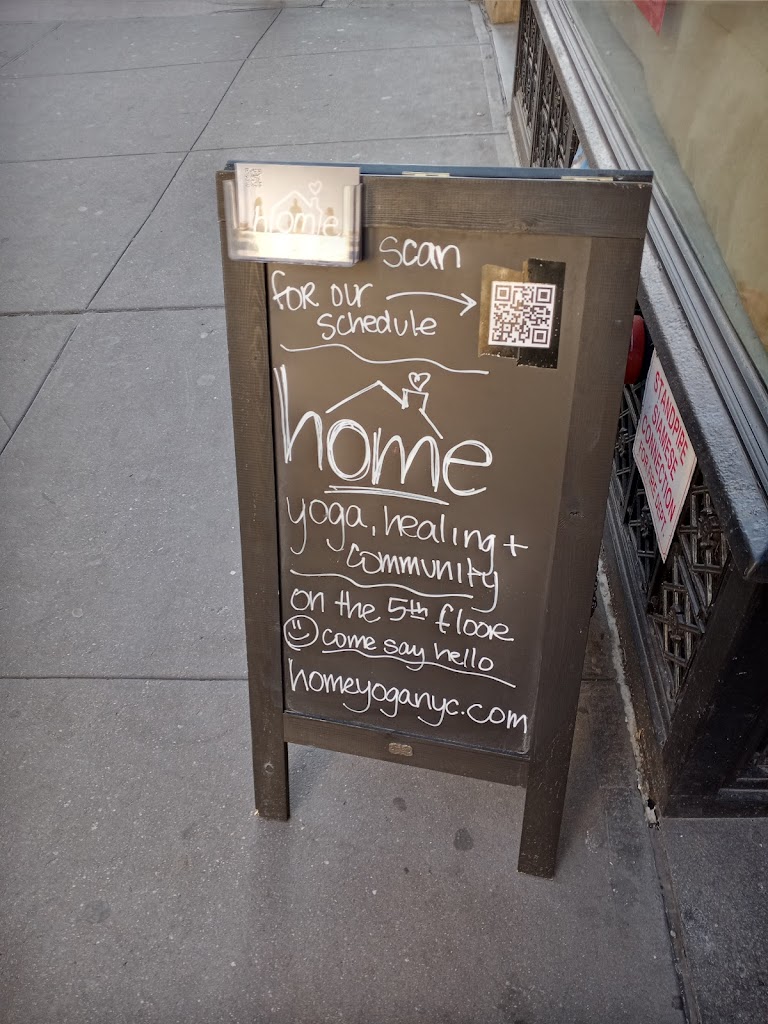 home
scan
for our
schedule
home
yoga, healing +
community
on the 5th floor
come say hello
homeyoganyc.com
STANDPIPE
SIAMESE
CONNECTION